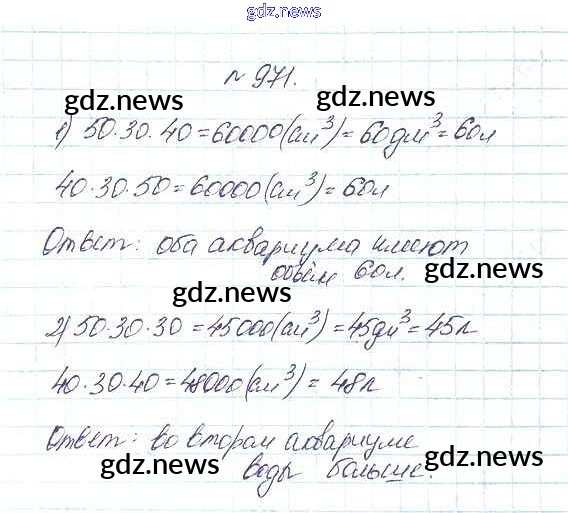 gdz.news
№ 971.
gdz.news gdz.news
1) 50·30·40=60000(см³)=60дм³=60л
40·30·50=60000(см³)=60л
Ответ: оба аквариума имеют
gdz.news
объём 60л.
gdz.news
2) 50·30·30=45000(см³)=45дм³=45л
40·30·40=48000(см³)=48л
Ответ: во втором аквариуме
gdz.news gdz.news
воды больше.